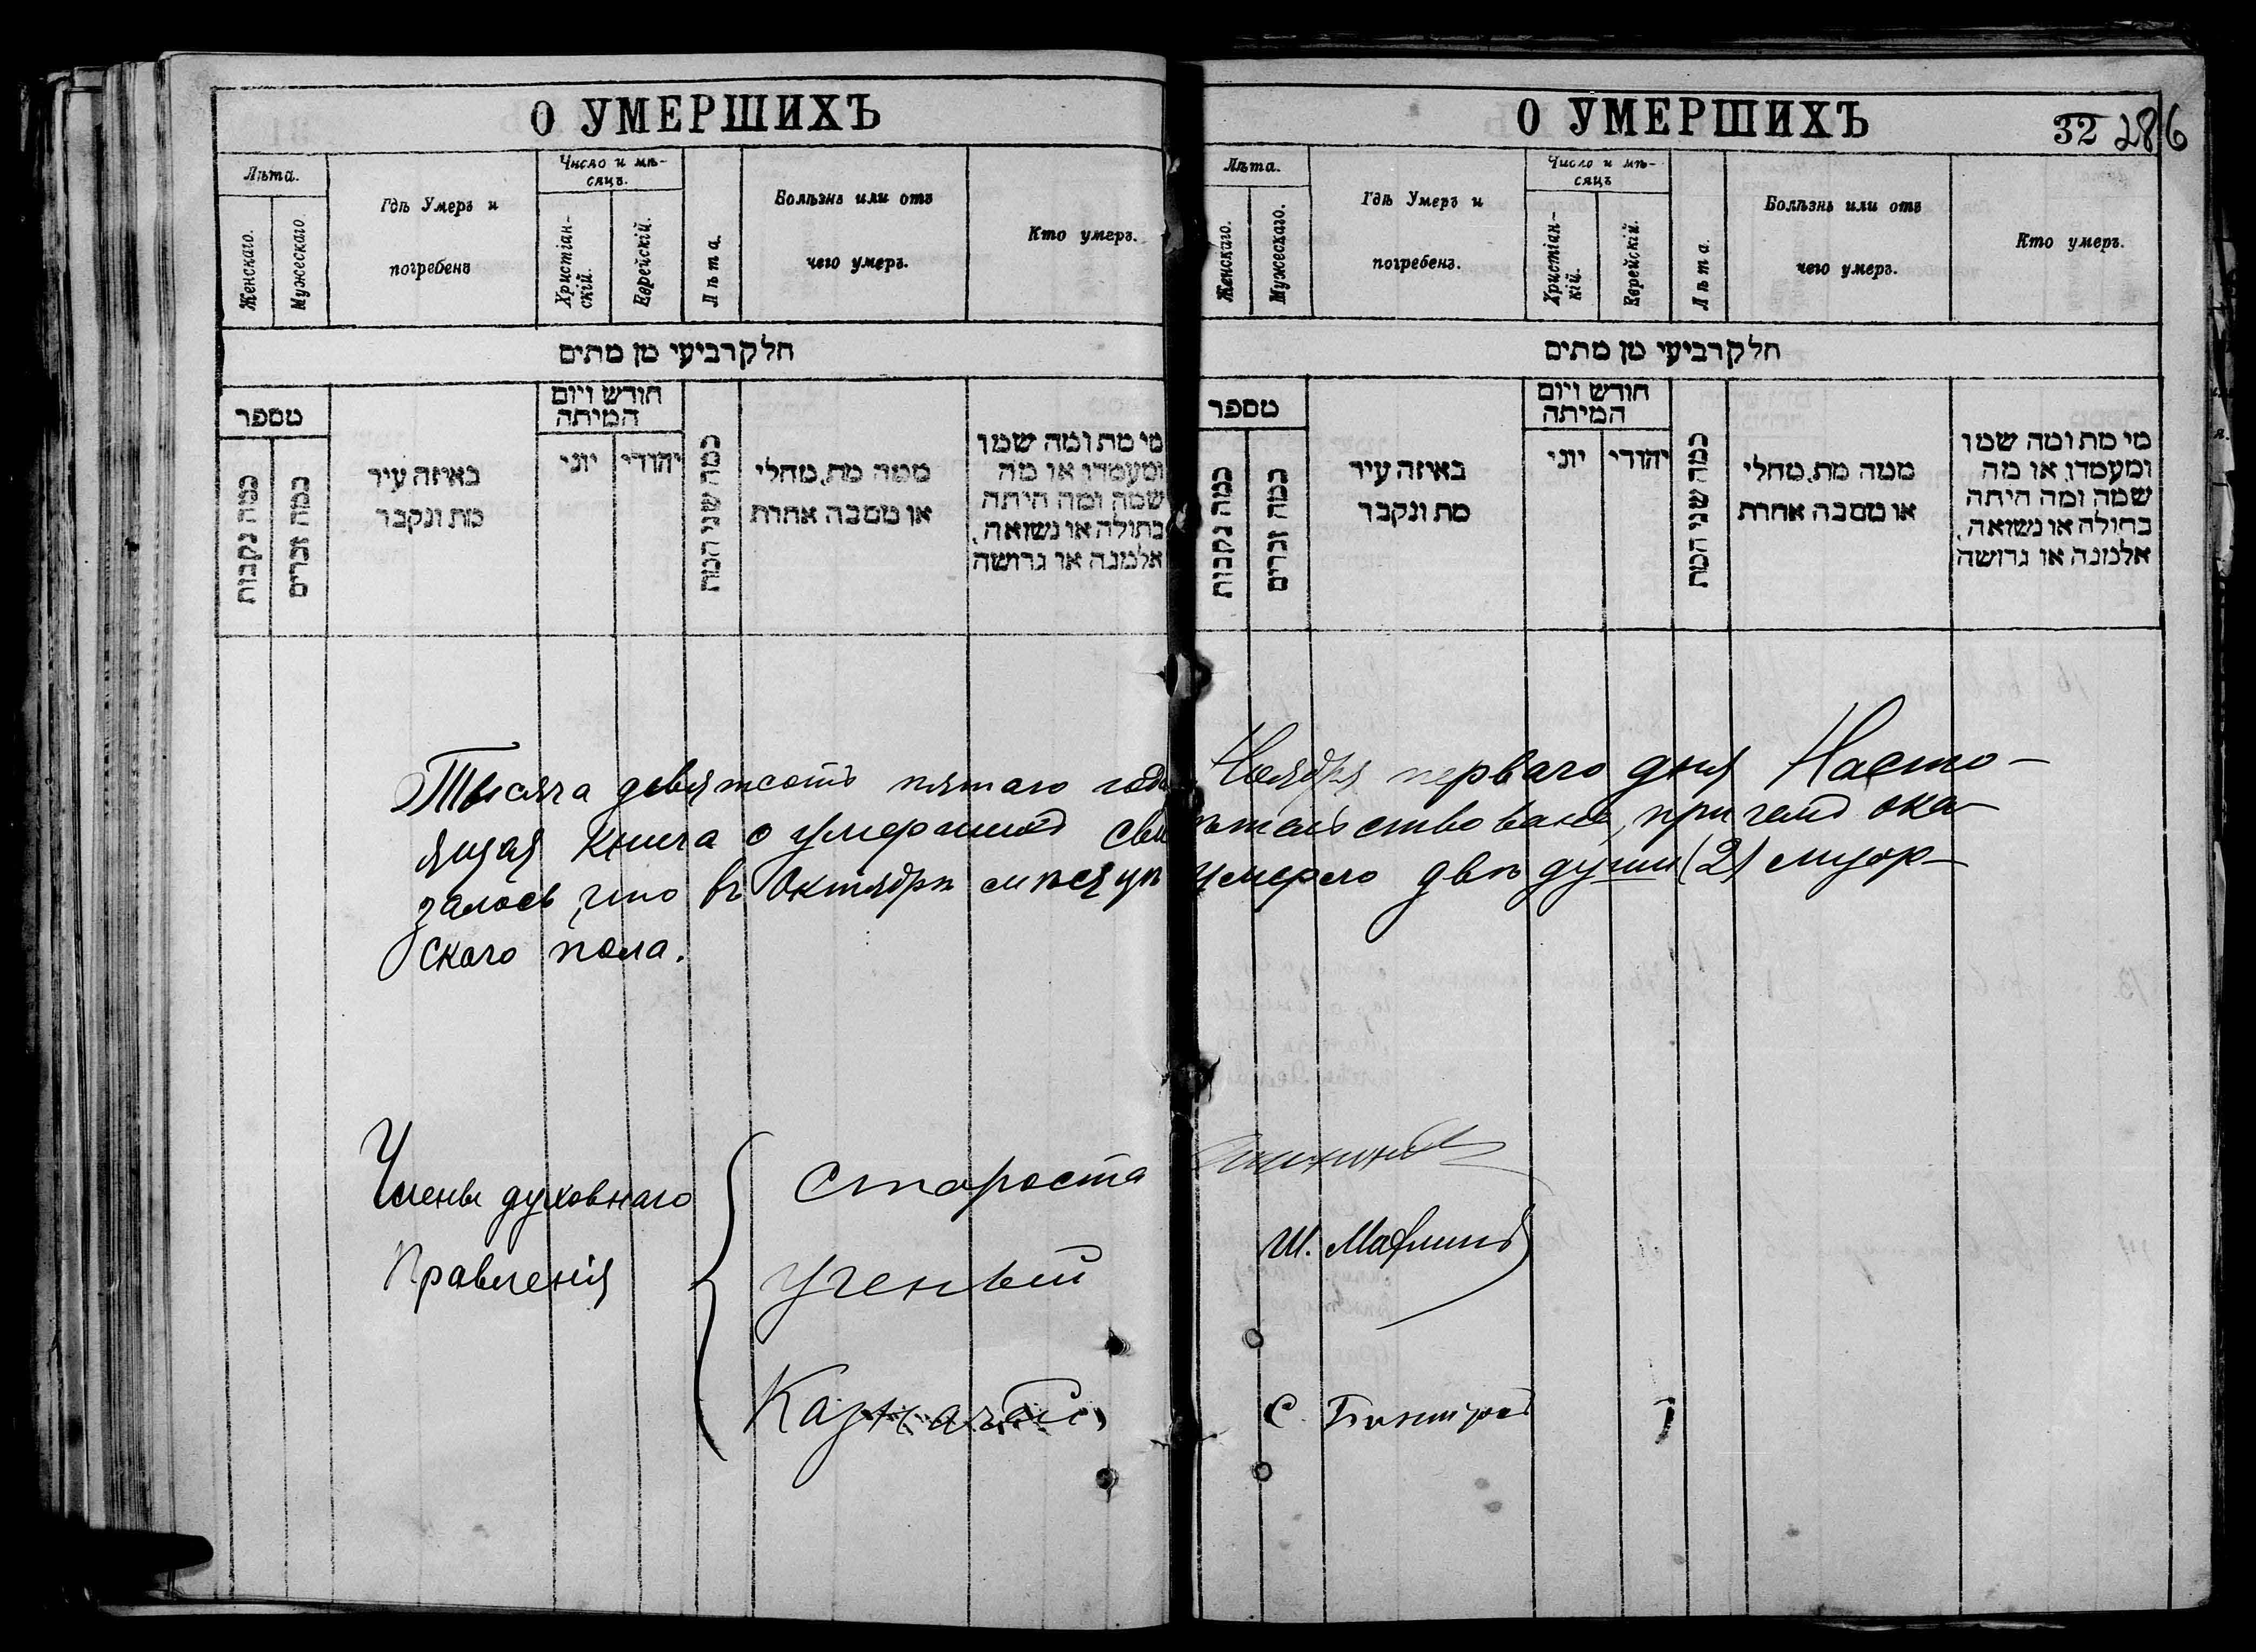 О УМЕРШИХЪ
Лѣта.
Женскаго.
Мужескаго
Гдѣ Умеръ и
погребенъ
Число и мѣ-
сяцъ.
Христіан-
скій.
Еврейскій.
Лѣта.
Болѣзнь или отъ
чего умеръ.
Кто умеръ.
חלק רביעי מן מתים
מספר
כמה נקבות
כמה זכרים
באיזה עיר
מת ונקבר
חודש ויום
המיתה
יוני
יהודי
כמה שני המת
ממה מת, מחלי
או מסבה אחרת
מי מת ומה שמו
ומעמדו או מה
שמה ומה היתה
בתולה או נשואה,
אלמנה או גרושה
О УМЕРШИХЪ
32 286
Лѣта.
Женскаго.
Мужескаго.
Гдѣ Умеръ и
погребенъ.
Число и мѣ-
сяцъ
Христіан-
кій.
Еврейскій.
Лѣта.
Болѣзнь или отъ
чего умеръ.
Кто умеръ.
חלק רביעי מן מתים
מספר
כמה נקבות
כמה זכרים
באיזה עיר
מת ונקבר
חודש ויום
המיתה
יוני
יהודי
כמה שני המת
ממה מת, מחלי
או מסבה אחרת
מי מת ומה שמו
ומעמדו, או מה
שמה ומה היתה
בתולה או נשואה,
אלמנה או גרושה
Тысяча девятьсотъ пятаго года Ноября перваго дня Насто-
ящая книга о умершихъ свидѣтельствована, при чемъ ока-
залось, что въ Октябрѣ мѣсяцѣ умерло двѣ души (2) мужс-
скаго пола.
Члены духовнаго
Правленія
Староста
Ученый
Ш.
Казначей
С.